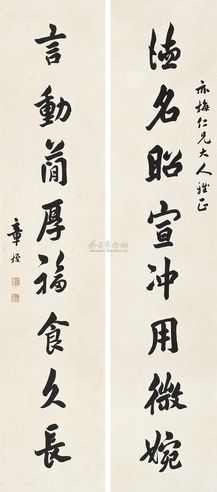 亦梅仁兄大人雅正
德名昭宣冲用微婉
言動簡厚福食久長
章梫